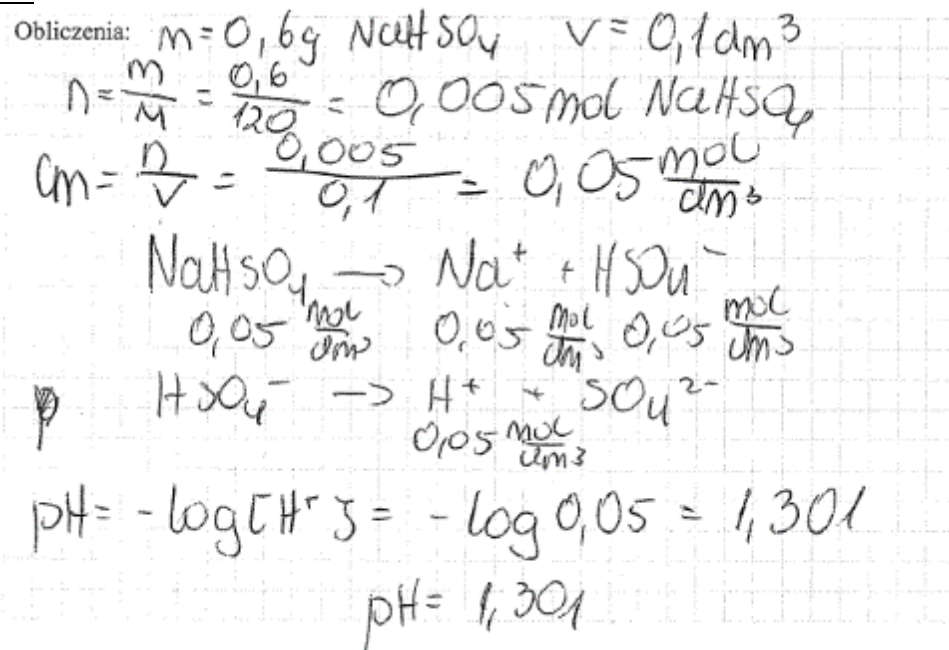 Obliczenia: m = 0,6g NaHSO₄ V = 0,1dm³
n = m/M = 0,6/120 = 0,005 mol NaHSO₄
Cm = n/V = 0,005/0,1 = 0,05 mol/dm³
NaHSO₄ → Na⁺ + HSO₄⁻
0,05 mol/dm³ 0,05 mol/dm³ 0,05 mol/dm³
HSO₄⁻ → H⁺ + SO₄²⁻
0,05 mol/dm³
pH = -log[H⁺] = -log 0,05 = 1,301
pH = 1,301